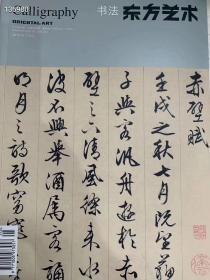 Calligraphy 书法
ORIENTAL ART
东方艺术
赤壁赋
壬戌之秋七月既望蘇
子與客汎舟遊於赤
壁之下清風徐来水
波不興舉酒属客誦
明月之詩歌窈窕